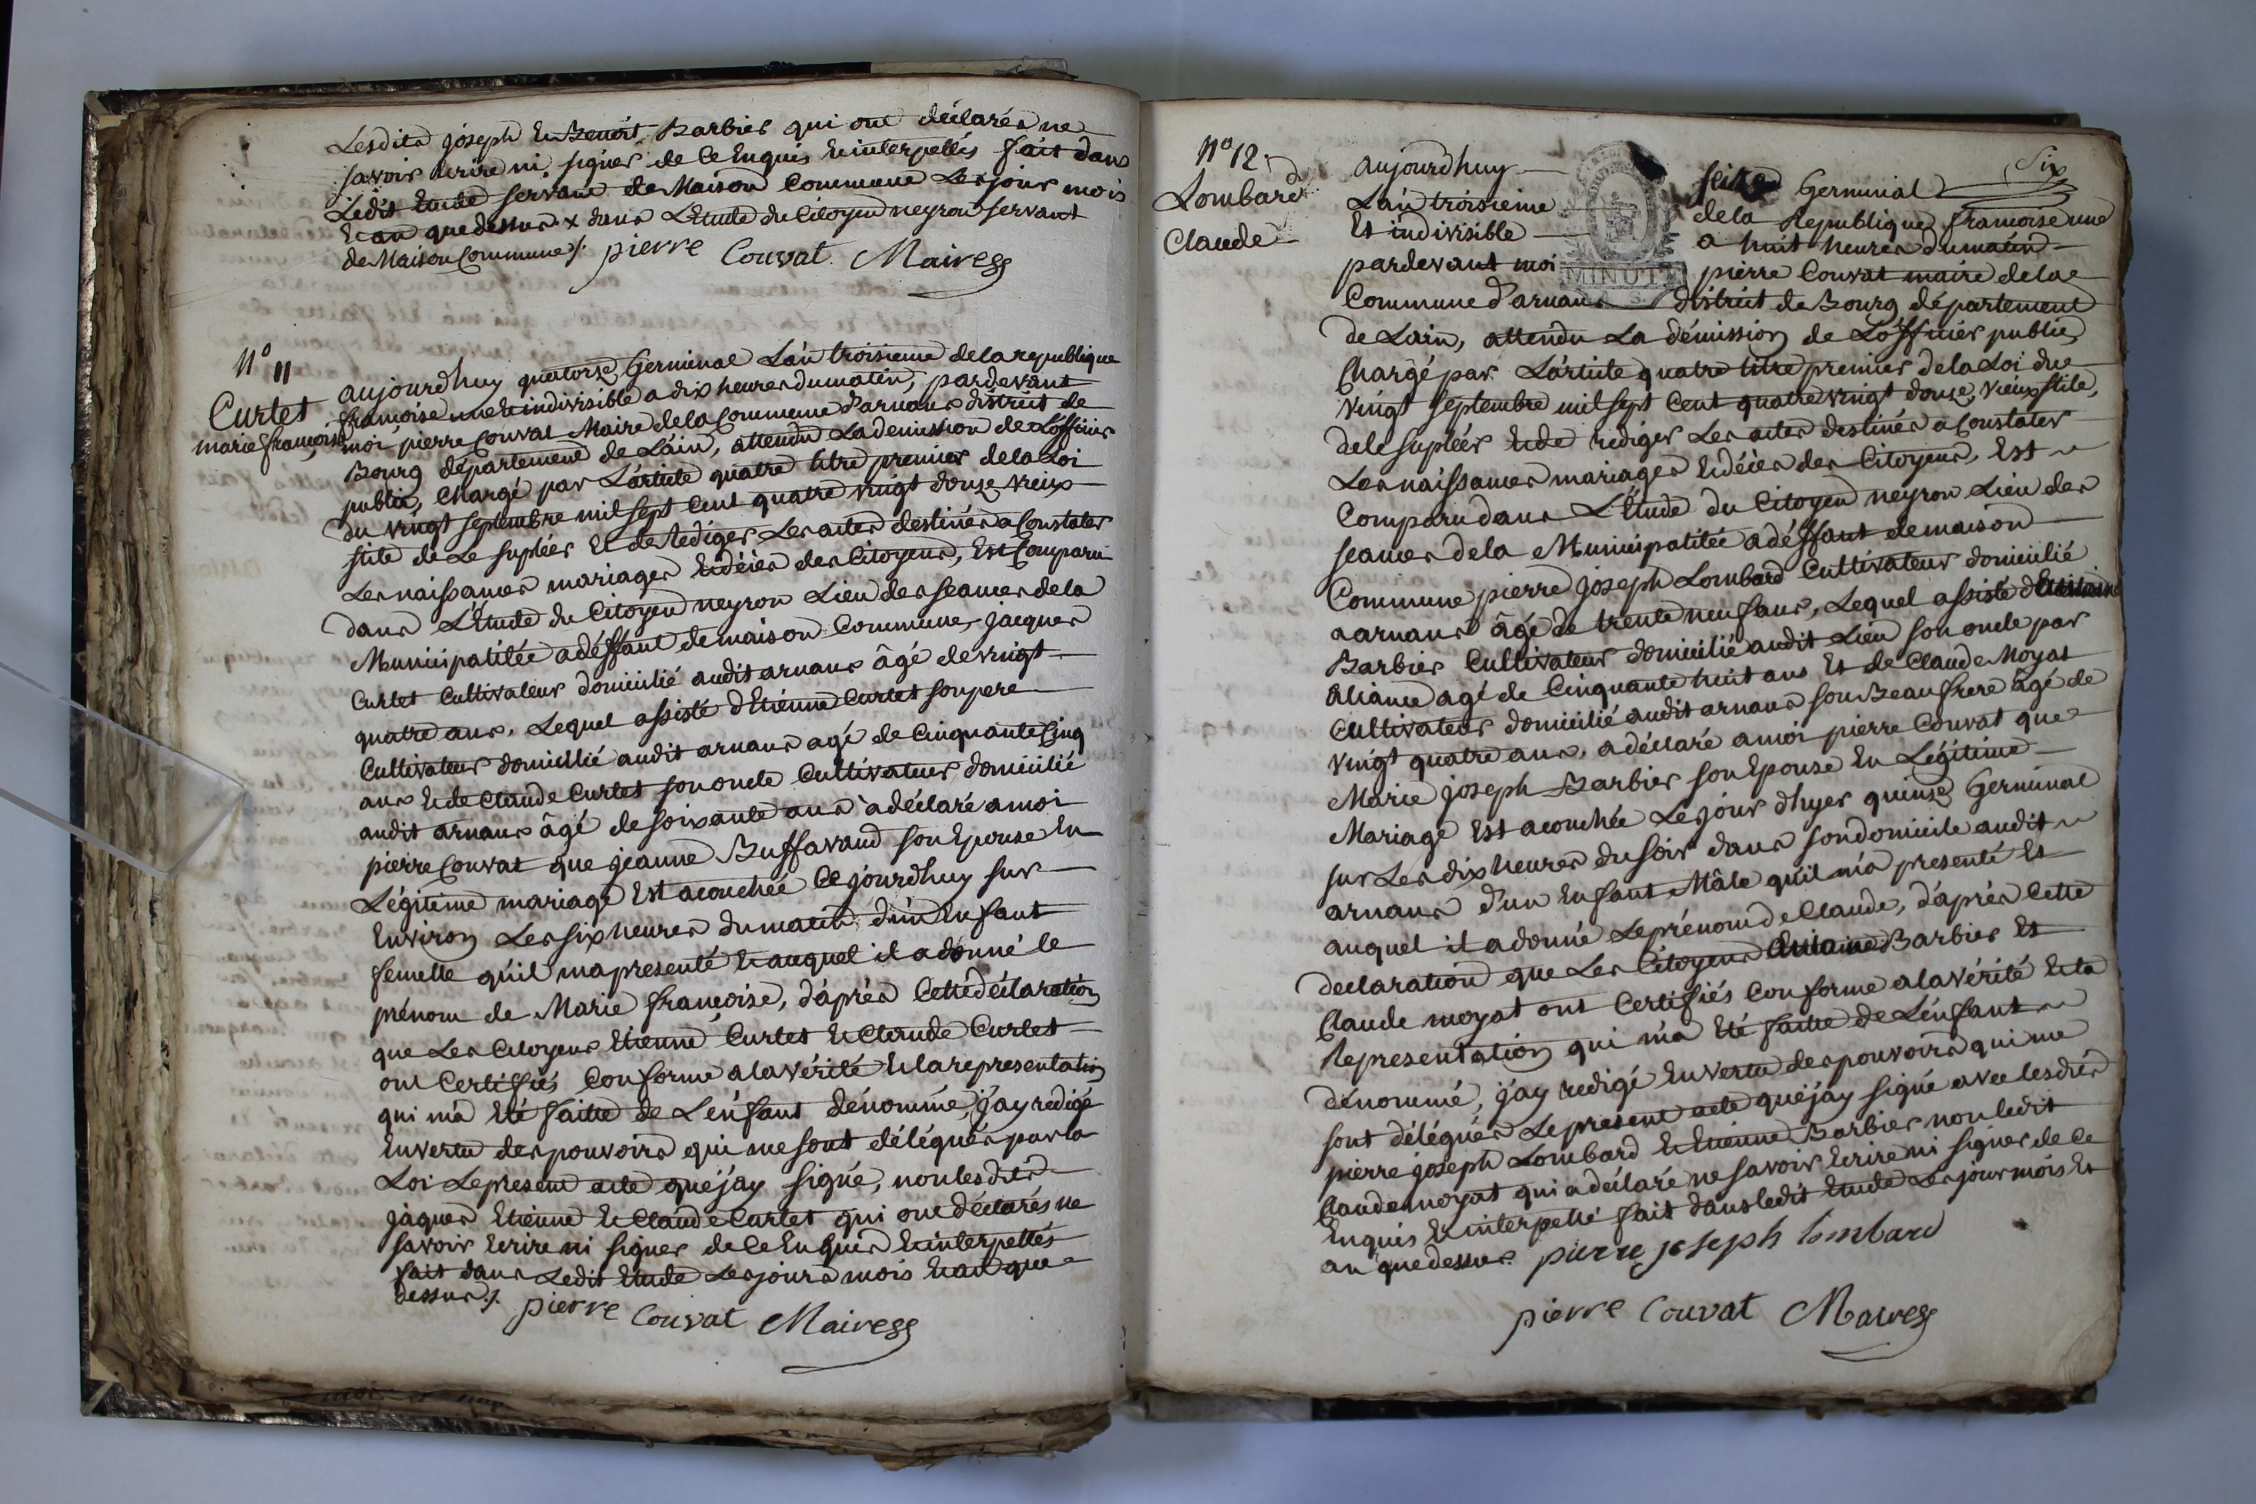 Lesdits joseph Et Benoit Barbier qui ont déclarés ne
savoir Ecrire ni signer de Ce Enquis Et interpellés fait dans
Ledit Etude servant de Maison Commune Les jour mois
Et an que dessus x dans L'Etude du Citoyen neyron servant
de Maison Commune ./. pierre Couvat Maire
N° 11
Curtet
marie françoise
aujourdhuy quatorze Germinal L'an troisieme de la republique
françoise une Et indivisible a dix heures du matin, pardevant
moi pierre Couvat Maire de la Commune d'arnans district de
Bourg département de L'ain, attendu La demission de L'officier
public, Chargé par L'article quatre titre premier de la Loi
du vingt septembre mil sept Cent quatre vingt douze vieux
stile de Le supléer Et de Rediger Les actes destinés a Constater
Les naissances mariages Et décès des Citoyens, Est Comparu
dans L'Etude du Citoyen neyron Lieu des seances de la
Municipalitée a déffaut de maison Commune, jacques
Curtet Cultivateur domicilié audit arnans âgé de vingt
quatre ans, Lequel assisté d'Etienne Curtet son pere
Cultivateur domicilié audit arnans agé de Cinquante Cinq
ans Et de Claude Curtet son oncle Cultivateur domicilié
audit arnans âgé de soixante ans a déclaré a moi
pierre Couvat que jeanne Buffavand son Epouse En
Légitime mariage Est acouchée Ce jourdhuy sur
Environ Les six heures du matin d'un Enfant
femelle qu'il m'a presenté Et auquel il a donné le
prénom de Marie françoise, d'après Cette déclaration
que Les Citoyens Etienne Curtet Et Claude Curtet
ont Certifiés Conforme a la vérité Et la representation
qui m'a Eté faitte de L'enfant dénommé, j'ay redigé
En vertu des pouvoirs qui me sont délégués par la
Loi Le présent acte que j'ay signé, non lesdits
jaques Etienne Et Claude Curtet qui ont déclarés ne
savoir Ecrire ni signer de Ce Enquis Et interpellés
fait dans Ledit Etude Les jours mois Et an que
dessus ./. pierre Couvat Maire
Six
N° 12
Lombard
Claude
aujourdhuy seize Germinal
L'an troisieme de la Republique françoise une
Et indivisible a huit heures du matin
pardevant moi pierre Couvat maire de la
MINUTE
Commune d'arnans district de Bourg département
de L'ain, attendu La démission de L'officier public
Chargé par L'article quatre titre premier de la Loi du
vingt septembre mil sept Cent quatre vingt douze, vieux stile,
de le supléer Et de rediger Les actes destinés a Constater
Les naissances mariages Et décès des Citoyens, Est
Comparu dans L'Etude du Citoyen neyron Lieu des
seances de la Municipalitée a déffaut de maison
Commune pierre joseph Lombard Cultivateur domicilié
a arnans âgé de trente neuf ans, Lequel assisté d'
Barbier Cultivateur domicilié audit Lieu son oncle par
aliance agé de Cinquante huit ans Et de Claude Moyat
Cultivateur domicilié audit arnans son Beaufrere âgé de
vingt quatre ans, a déclaré a moi pierre Couvat que
Marie joseph Barbier son Epouse En Légitime
Mariage Est acouchée Le jour d'hyer quinze Germinal
sur Les dix heures du soir dans son domicile audit
arnans d'un Enfant Mâle qu'il m'a presenté Et
auquel il a donné Le prénom de Claude, d'après Cette
declaration que Les Citoyens Barbier Et
Claude moyat ont Certifiés Conforme a la vérité Et la
Representation qui m'a Eté faitte de L'enfant
dénommé, j'ay redigé En vertu des pouvoirs qui me
sont délégués Le present acte que j'ay signé avec lesdits
pierre joseph Lombard Et Etienne Barbier non ledit
Claude moyat qui a déclaré ne savoir Ecrire ni signer de Ce
Enquis Et interpellé fait dans ledit Etude Les jour mois Et
an que dessus. pierre joseph lombard
pierre Couvat Maire